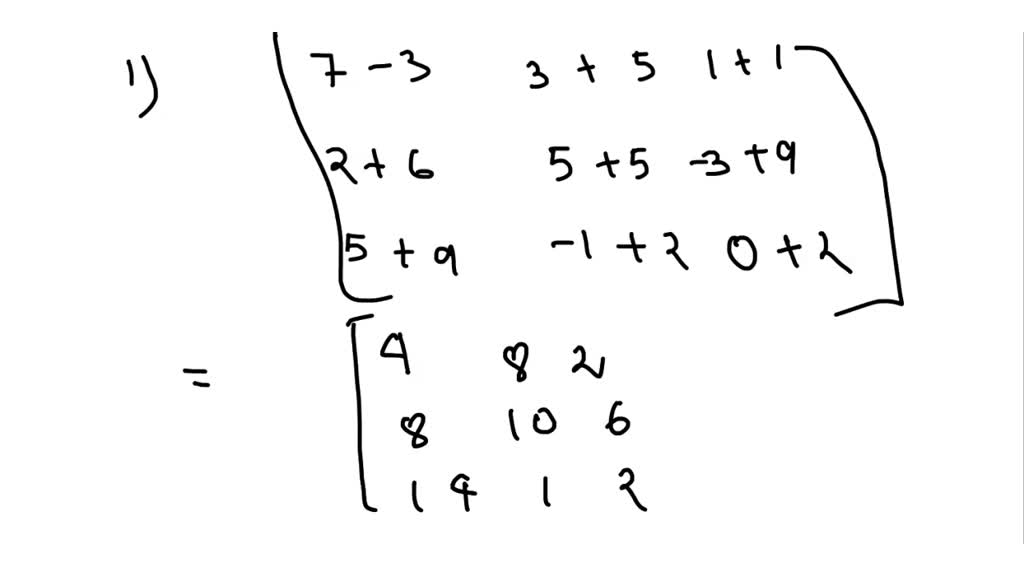 1) [ 7 - 3 3 + 5 1 + 1 ]
2 + 6 5 + 5 -3 + 9
5 + 9 -1 + 2 0 + 2
= [ 4 8 2
8 10 6
14 1 2